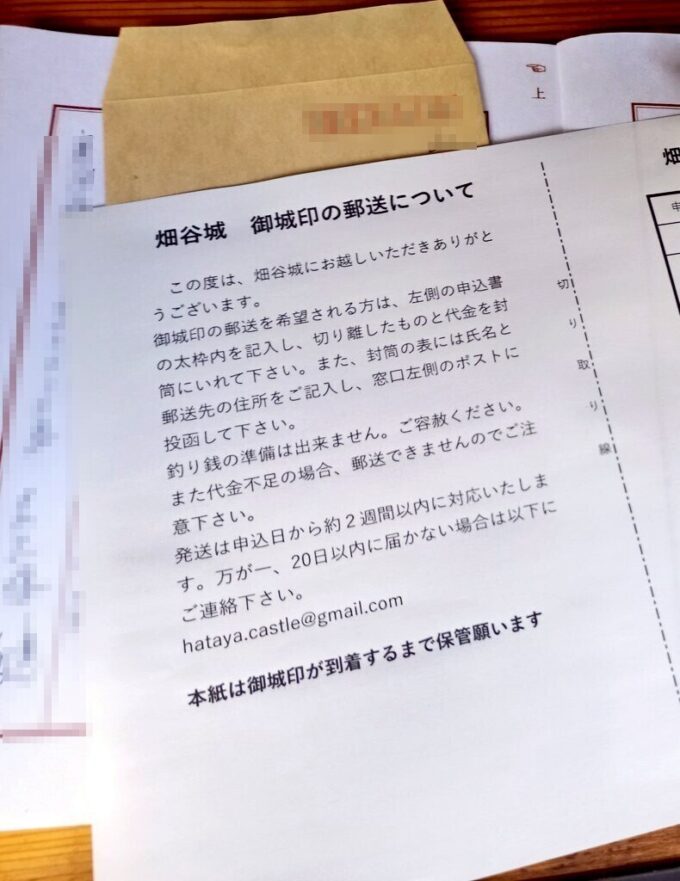 上
畑谷城　御城印の郵送について
この度は、畑谷城にお越しいただきありがと
うございます。
御城印の郵送を希望される方は、左側の申込書
の太枠内を記入し、切り離したものと代金を封
筒にいれて下さい。また、封筒の表には氏名と
郵送先の住所をご記入し、窓口左側のポストに
投函して下さい。
釣り銭の準備は出来ません。ご容赦ください。
また代金不足の場合、郵送できませんのでご注
意下さい。
発送は申込日から約２週間以内に対応いたしま
す。万が一、20日以内に届かない場合は以下に
ご連絡下さい。
hataya.castle@gmail.com
本紙は御城印が到着するまで保管願います
切り取り線
畑
申